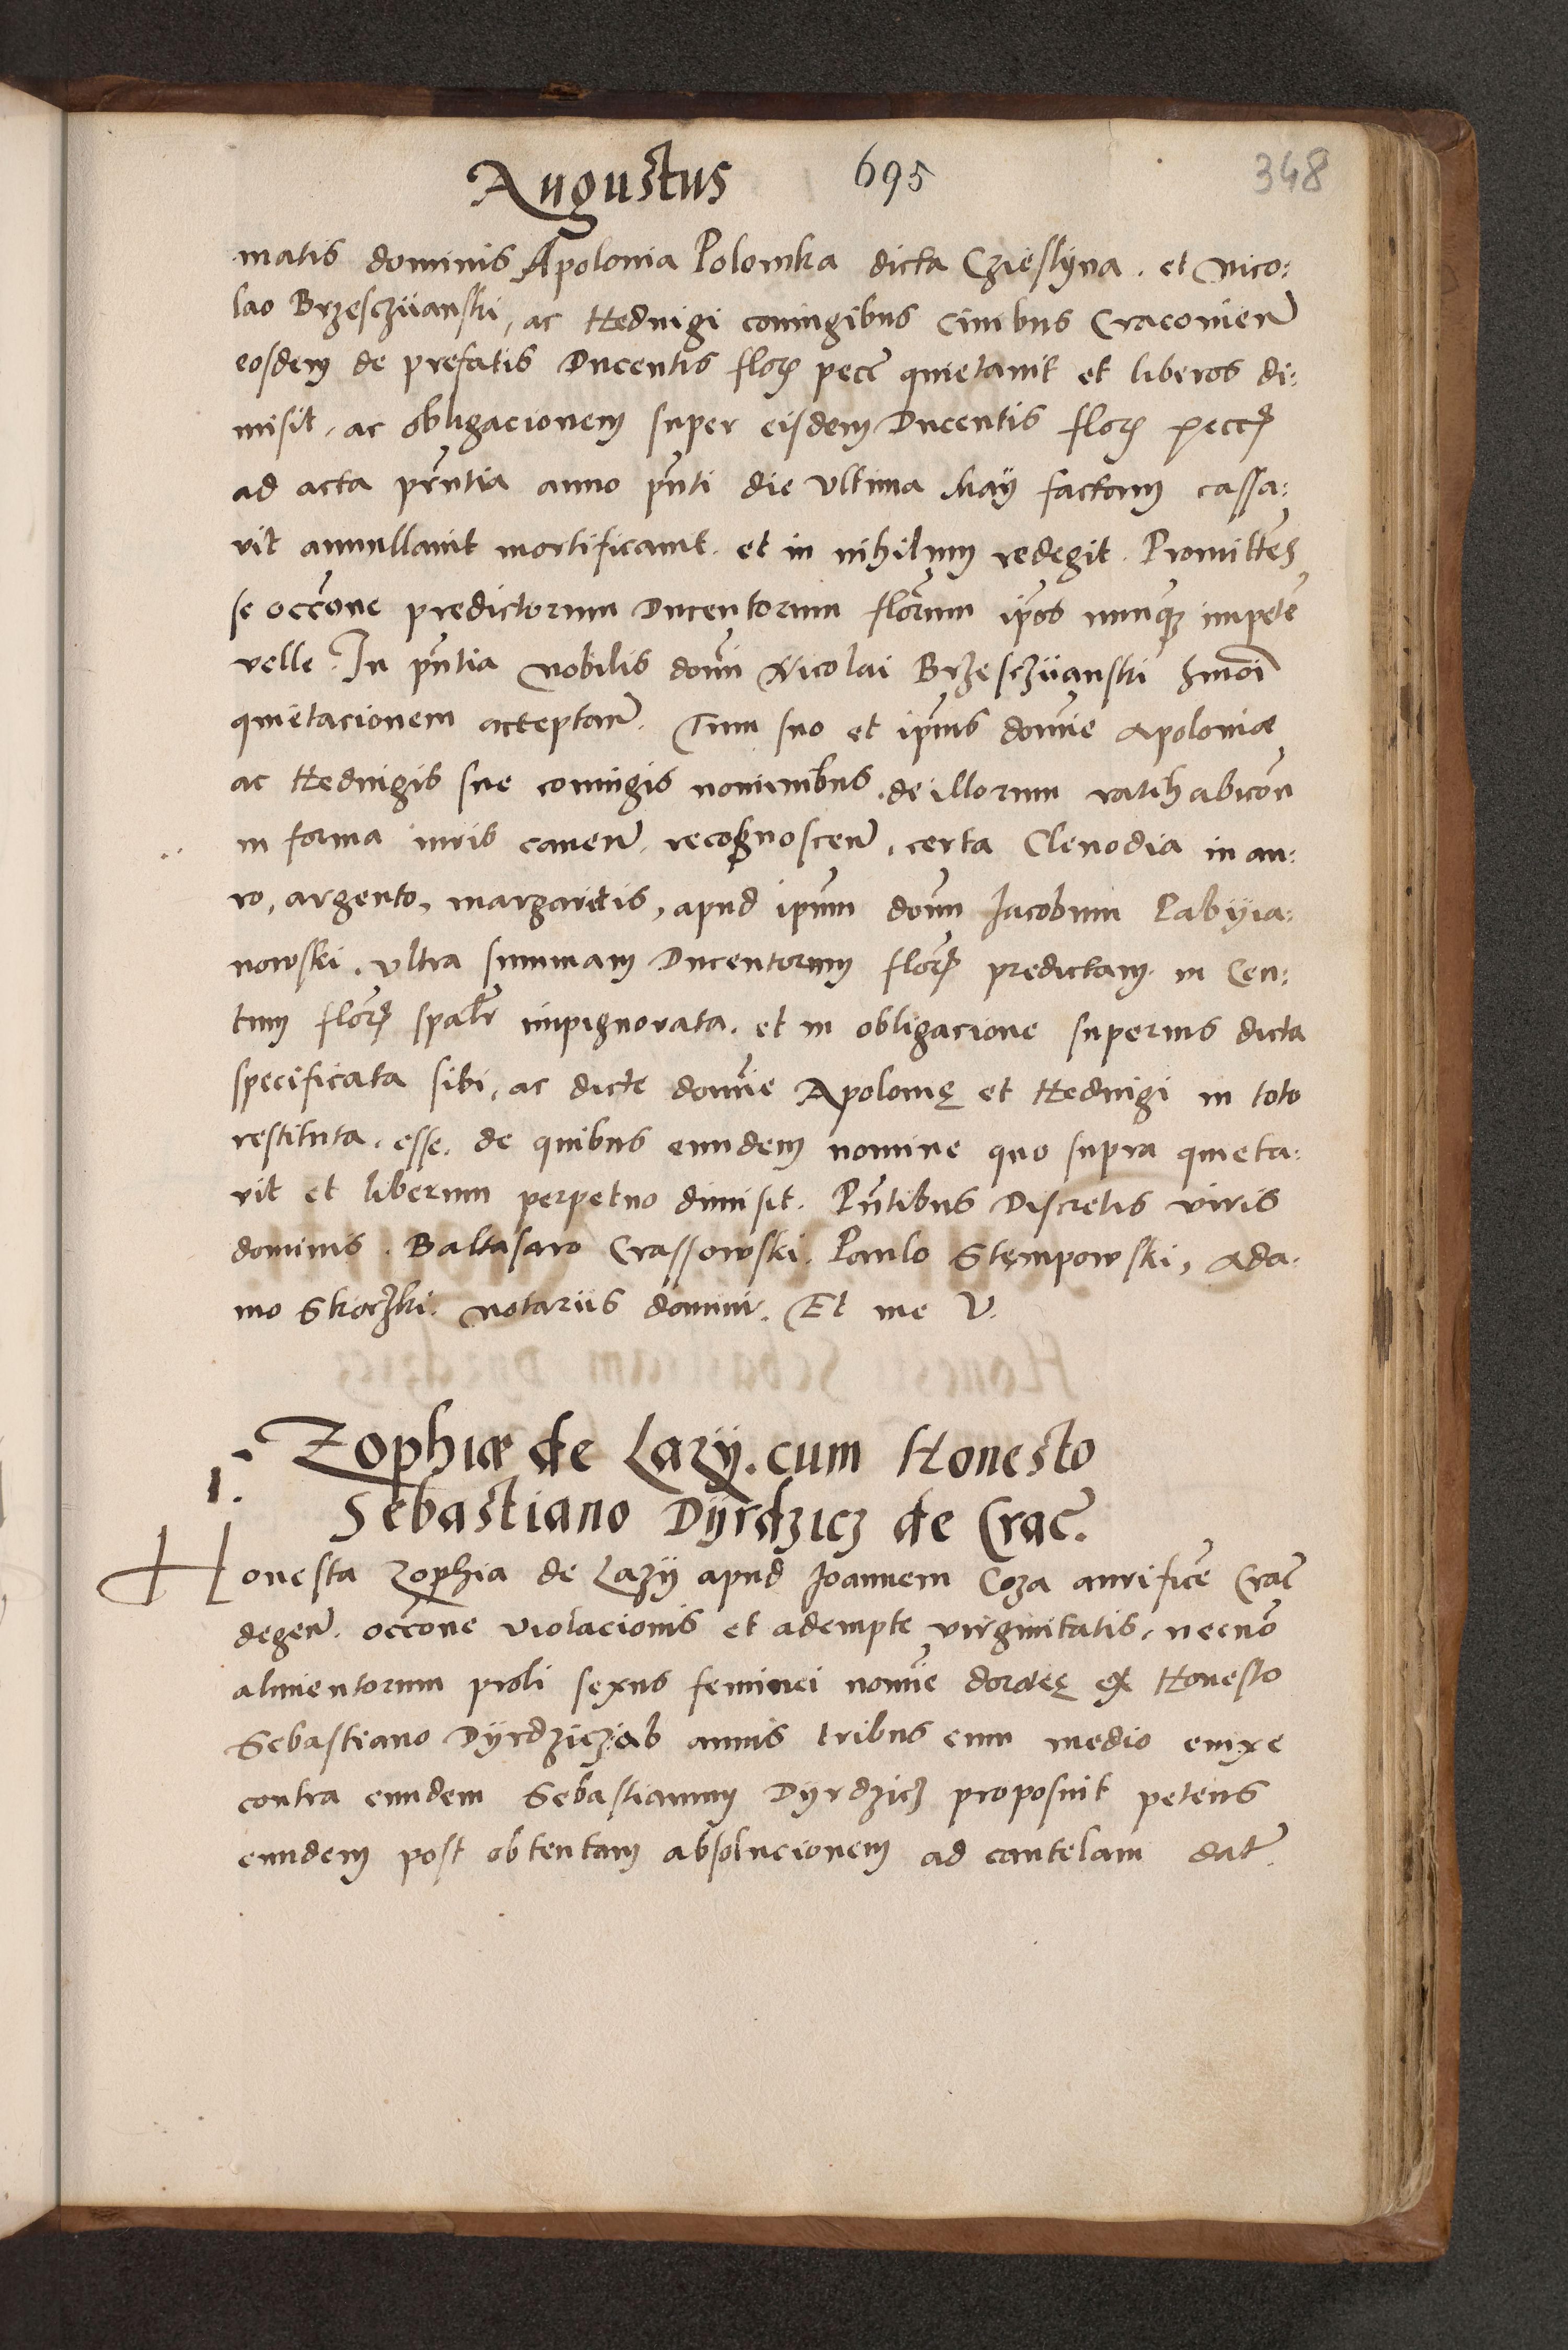 Augustus 695 348
matis dominis Apolonia Polomka dicta Czieslyna . et Nico:
lao Brzesczÿanski, ac Hedvigi coniugibus Civibus Cracovień
eosdem de prefatis Ducentis floɼ pecē quietavit et liberos di:
misit, ac obligacionem super eisdem Ducentis floɼ pecē
ad acta pñtia anno pñti die ultima Maÿ factam cassa:
vit annullavit mortificavit . et in nihilum redegit . Promittēs
se occōne predictorum Ducentorum florum ip̄os nunq̄ impete
velle . In pñtia Nobilis dom̄i Nicolai Brzesczÿanski hmōi
quietacionem acceptañ . Tum suo et ip̄ius dom̄ie Apoloniæ
ac Hedvigis sue coniugis nominibus . de illorum ratihabicōn
in forma iuris caveñ . recognosceñ . certa Clenodia in au:
ro, argento, margaritis, apud ip̄um dom̄ Jacobum Pabyia:
nowski . ultra summam Ducentorum floɼ predictam in Cen:
tum floɼ spālr impignorata . et in obligacione superius dicta
specificata sibi, ac dicte dom̄ie Apolonię et Hedvigi in toto
restituta . esse . de quibus eundem nomine quo supra quieta:
vit et liberum perpetuo dimisit . Pñtibus Discretis viris
dominis . Baltasaro Crassowski . Paulo Stempowski, Ada:
mo Skoczki . notariis domini . Et me V.
1. Zophiæ de Lazÿ . cum Honesto
Sebastiano Dÿrdzicz de Crac̄ .
Honesta Zophia de Lazÿ apud Joannem Coza aurificē Crac̄
degeñ . occōne violacionis et adempte virginitatis, necnō
alimentorum proli sexus feminei nom̄ie doroteę ex Honesto
Sebastiano Dÿrdzicz ab annis tribus cum medio enixe
contra eundem Sebastianum Dyrdzicz proposuit petens
eundem post obtentam absolucionem ad cautelam dat̄